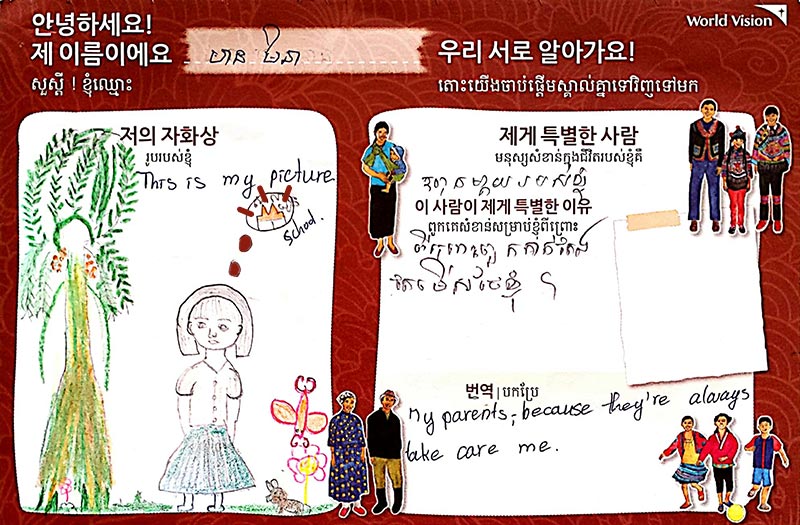 안녕하세요!
제 이름이에요
សួស្តី ! ខ្ញុំឈ្មោះ
World Vision
우리 서로 알아가요!
តោះយើងចាប់ផ្តើមស្គាល់គ្នាទៅវិញទៅមក
저의 자화상
រូបរបស់ខ្ញុំ
This is my picture
school.
제게 특별한 사람
មនុស្សសំខាន់ក្នុងជីវិតរបស់ខ្ញុំគឺ
이 사람이 제게 특별한 이유
ពួកគេសំខាន់សម្រាប់ខ្ញុំពីព្រោះ
번역 | បកប្រែ
My parents, because they're always
take care me.